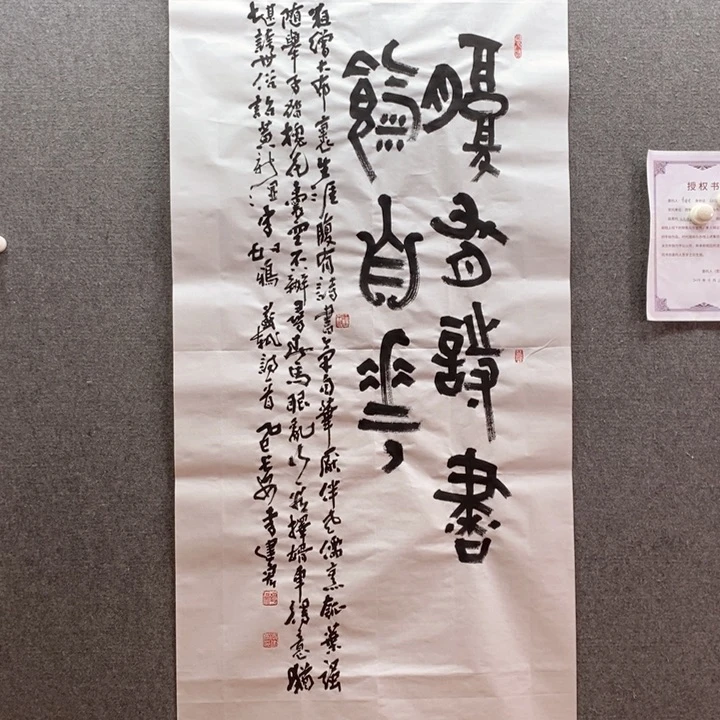 腹有詩書
氣自華
粗繒大布裹生涯腹有詩書氣自華厭伴老儒烹瓠葉强
隨舉子踏槐花囊空不辦尋春馬眼亂行看擇婿車得意猶
堪誇世俗詔黃新濕字如鴉 蘇軾詩一首 長安
授权书